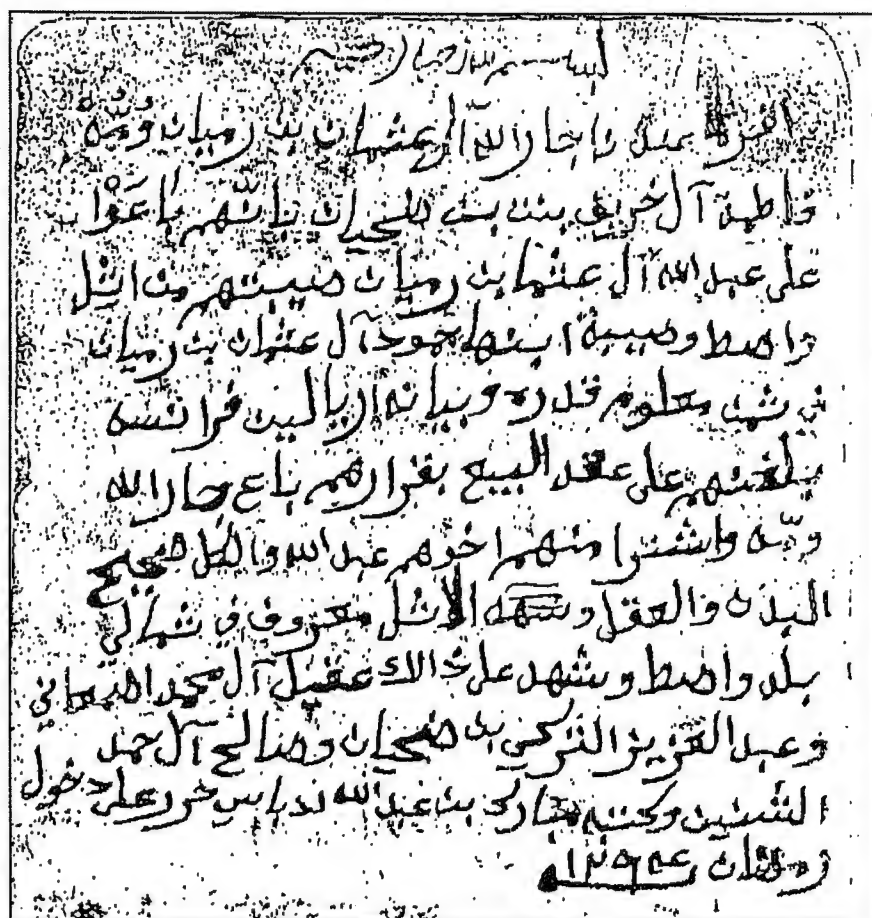 بسم الله الرحمن الرحيم
عندنا جار الله آل عثمان بن رميان ومّه
فاطمة آل خريف بنت بن ضحيان بانّهم باعوا
على عبد الله آل عثمان بن رميان صيبتهم من اثل
واصط وصيبة ابنها حمود آل عثمان بن رميان
في ثمن معلوم قدره وبيانه اريالين فرانسه
بلغتهم على عقد البيع بقرارهم باع جار الله
ومّه واشترا منهم اخوهم عبد الله والكل صحيح
البدن والعقل وسهم الاثل معروف في شمالي
بلد واصط وشهد على ذالك عقيل آل محمد
وعبد العزيز التركي ابن ضحيان وصالح آل حمد
الشنين وكتبه مبارك بن عبد الله ابن دباس حرر على دخول
رمضان